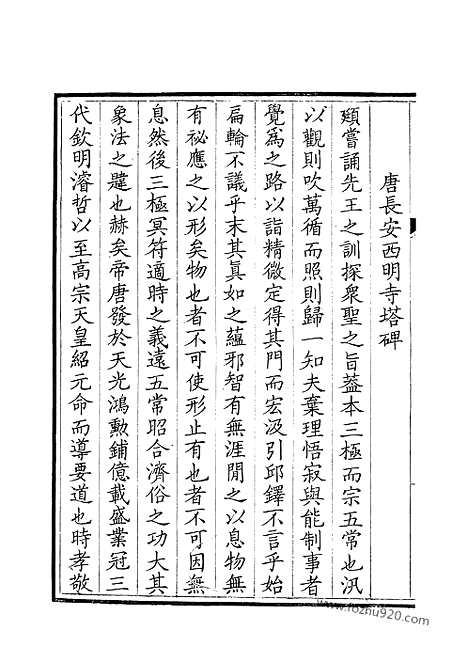 唐長安西明寺塔碑
頲嘗誦先王之訓探衆聖之旨葢本三極而宗五常也汎
以觀則吹萬循而照則歸一知夫棄理悟寂與能制事者
覺爲之路以詣精微定得其門而宏汲引邱鐸不言乎始
扁輪不議乎末其眞如之蘊邪智有無涯閒之以息物無
有祕應之以形矣物也者不可使形止有也者不可因無
息然後三極冥符適時之義遠五常昭合濟俗之功大其
象法之韙也赫矣帝唐發於天光鴻勲鋪億載盛業冠三
代欽明濬哲以至高宗天皇紹元命而導要道也時孝敬
www.fozhu920.com